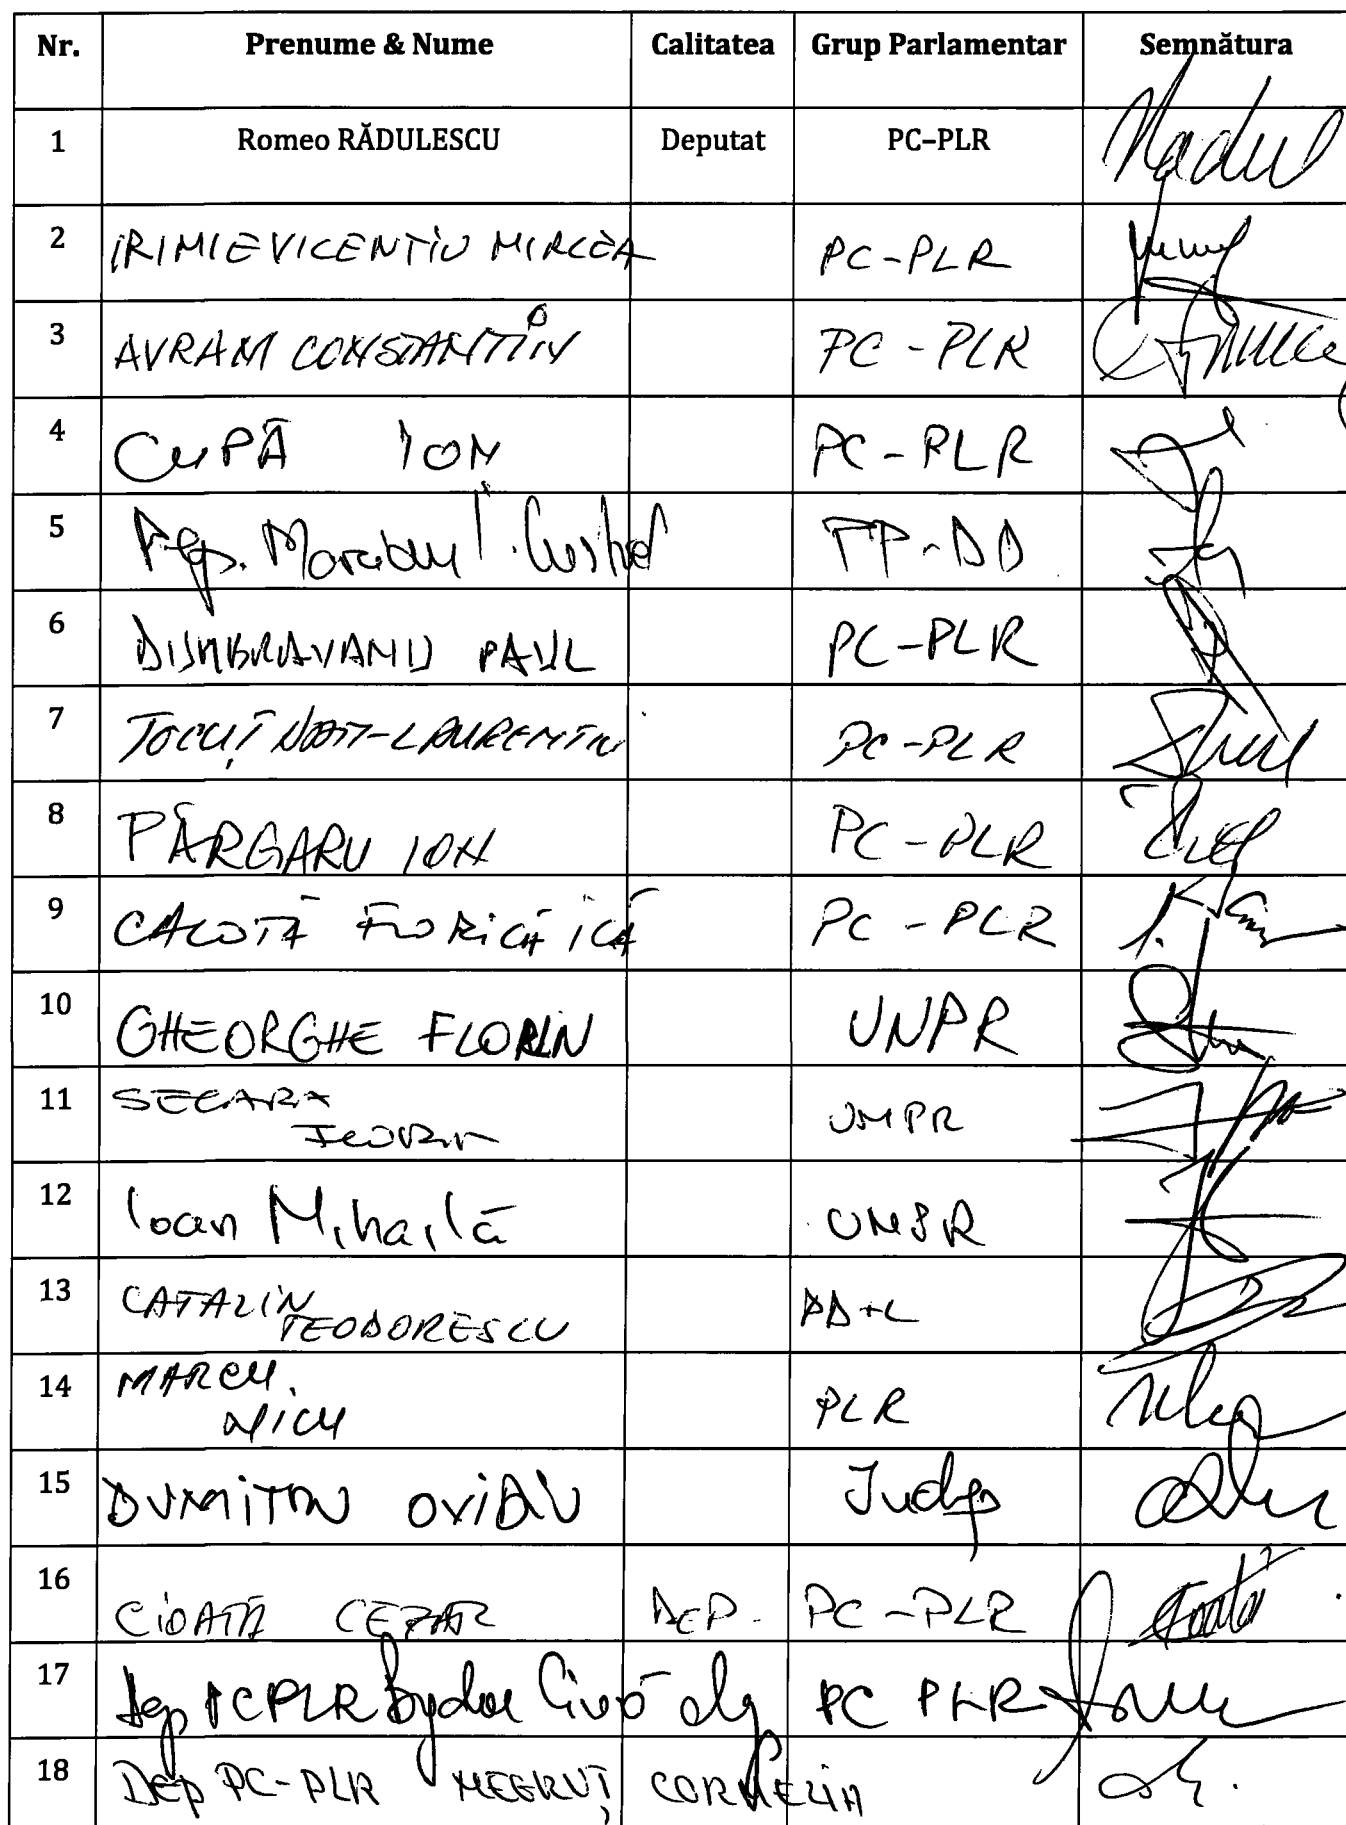 Nr. Prenume & Nume Calitatea Grup Parlamentar Semnătura
1 Romeo RĂDULESCU Deputat PC-PLR
2 IRIMIE VICENTIU MIRCEA PC-PLR
3 AVRAM CONSTANTIN PC-PLR
4 CUPĂ ION PC-PLR
5 Dep. PP-DD
6 DUMBRAVANU PAUL PC-PLR
7 TOCUȚ -LAURENTIU PC-PLR
8 PÂRGARU ION PC-PLR
9 CALOTĂ FLORICĂ ICĂ PC-PLR
10 GHEORGHE FLORIN UNPR
11 SECARA
UNPR
12 Ioan Mihăilă UNPR
13 CATALIN
TEODORESCU
14 MARCU
NICU PLR
15 DUMITRU OVIDIU Indep
16 CIOATĂ CEZAR DEP. PC-PLR
17 Dep PCPLR PC PLR
18 Dep PC-PLR NEGRUȚ CORNELIA